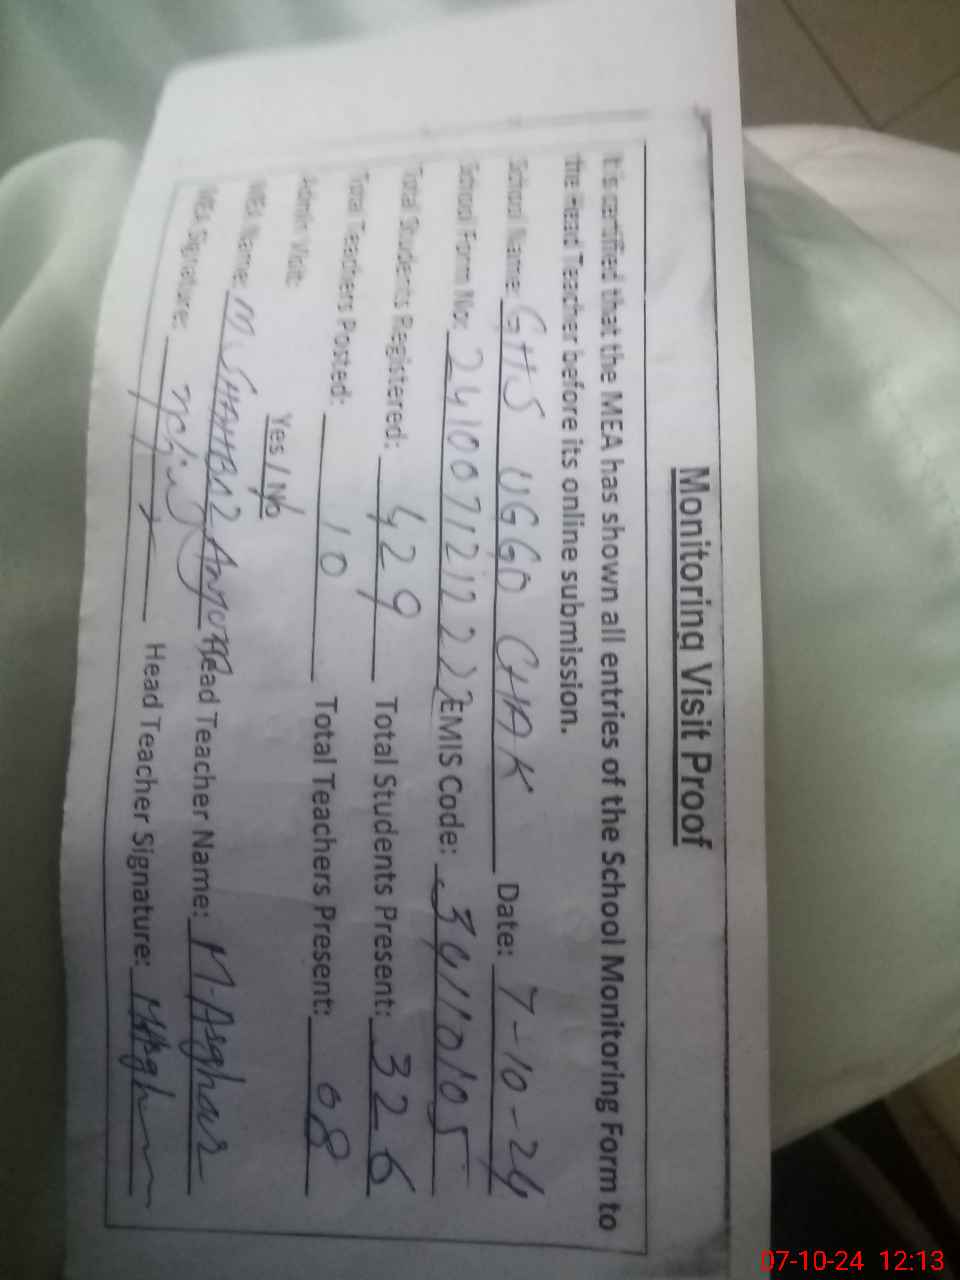 Monitoring Visit Proof
It is certified that the MEA has shown all entries of the School Monitoring Form to
the Head Teacher before its online submission.
School Name: GHS UGGO CHAK Date: 7-10-24
School Form No: EMIS Code: 34110105
Total Students Registered: 429 Total Students Present: 326
Total Teachers Posted: 10 Total Teachers Present: 08
Admin Visit: Yes / No
MEA Name: M SHAHBAZ Anjum Head Teacher Name: M-Asghar
MEA Signature: Head Teacher Signature:
07-10-24 12:13